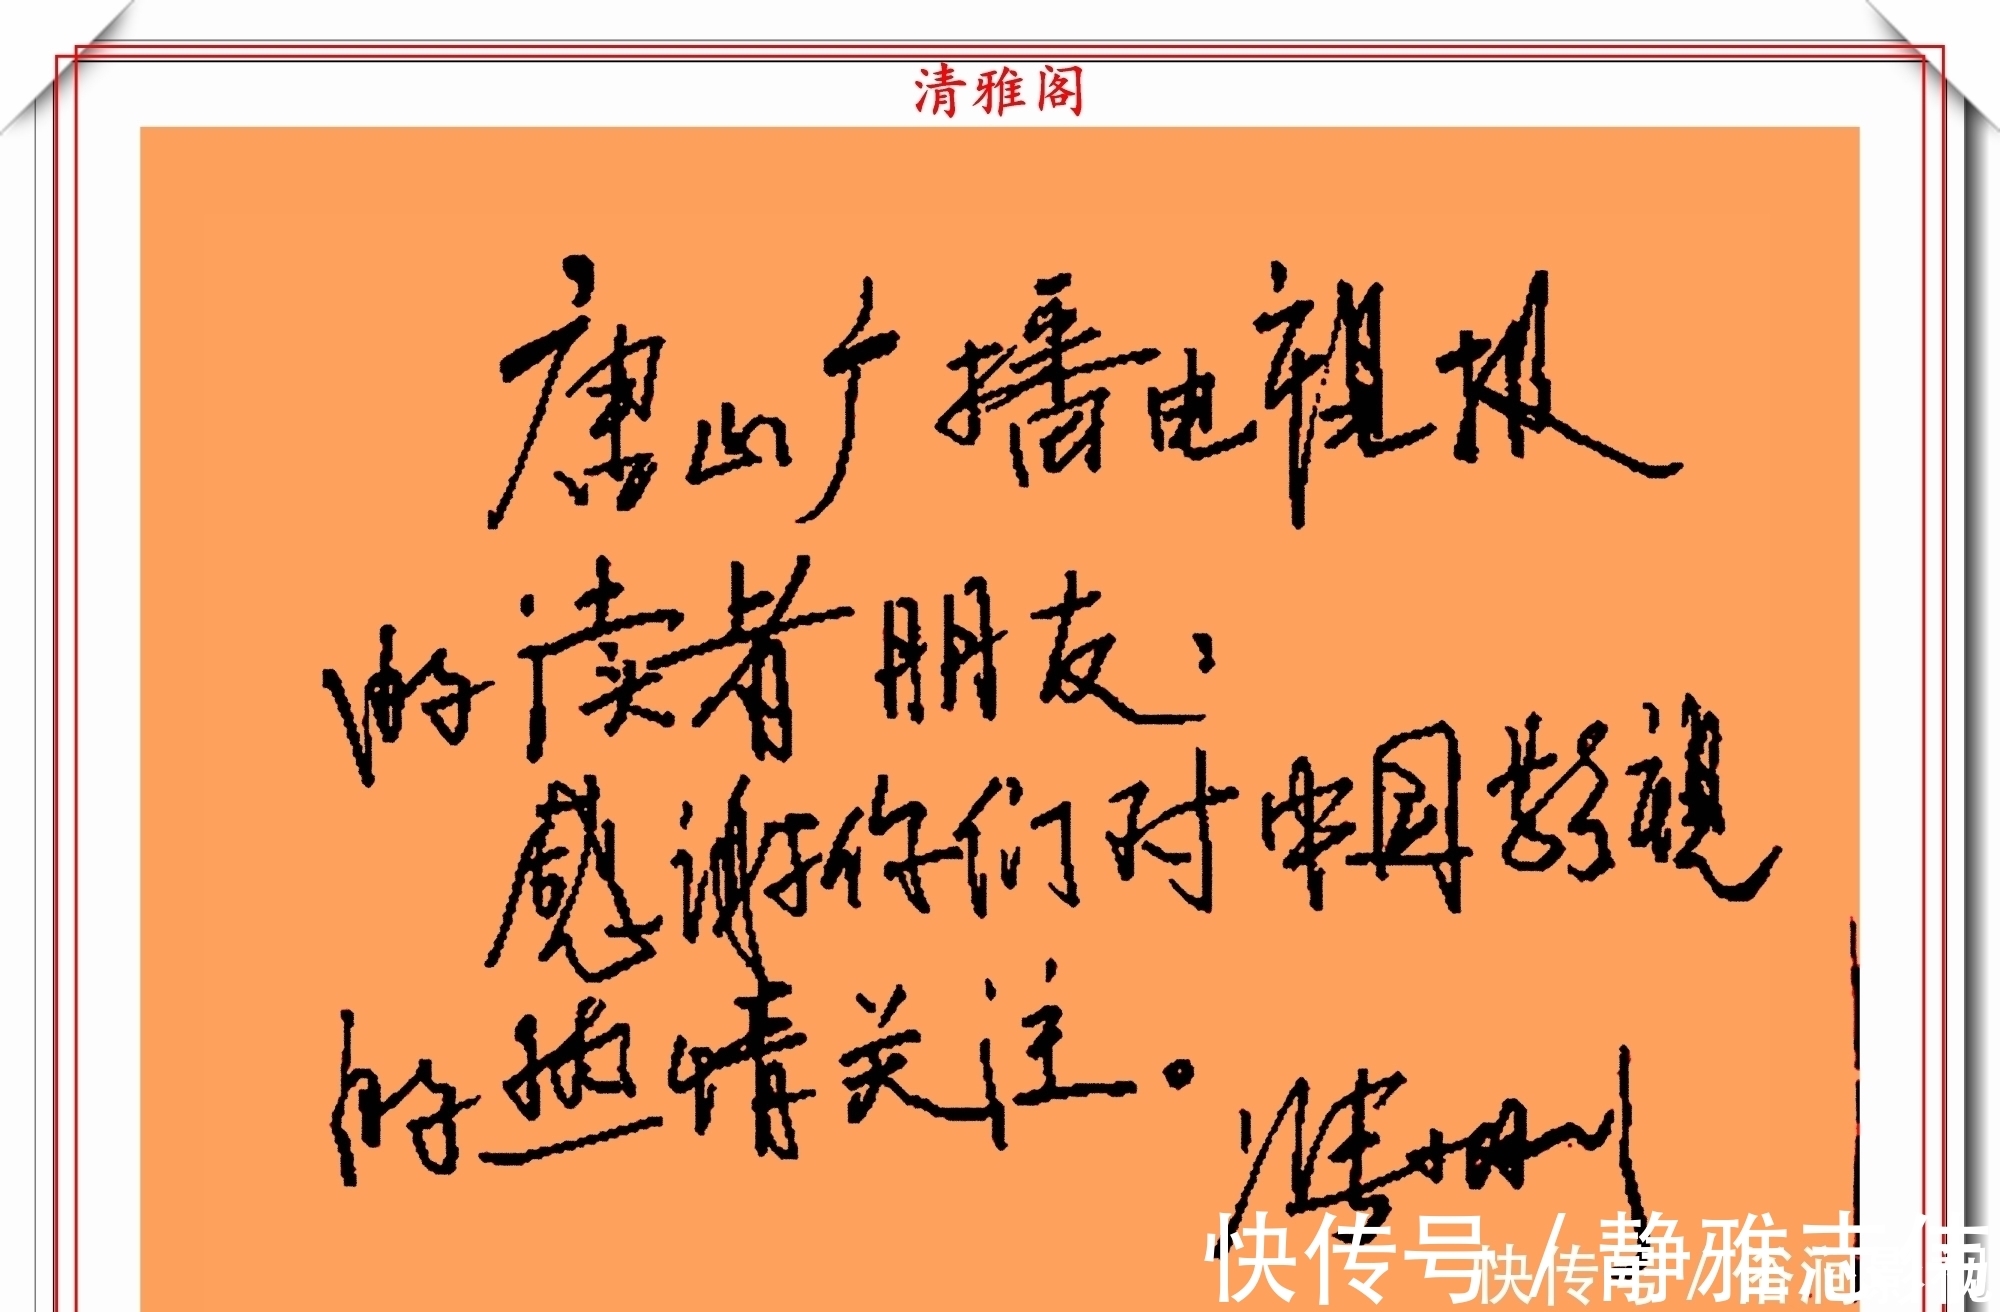 清雅阁
唐山广播电视报
的读者朋友：
感谢你们对中国影视
的热情关注。
快传号 / 静雅志
快传号 /